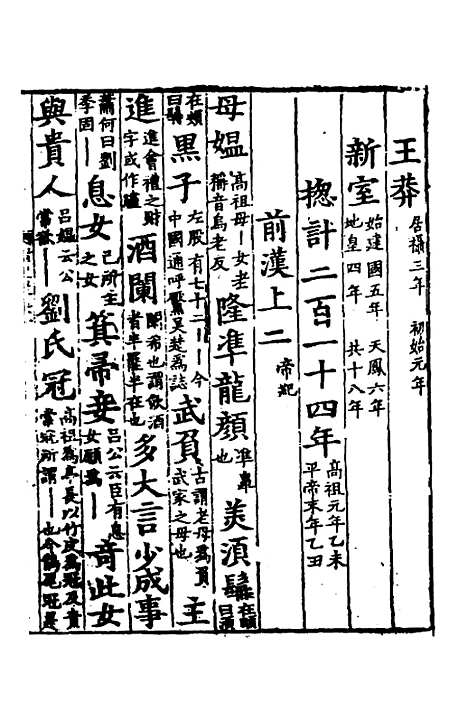 王莽 居攝三年 初始元年
新室 始建國五年 天鳳六年 地皇四年 共十八年
揔計二百一十四年 高祖元年乙未 平帝末年乙丑
前漢上二 帝紀
母媼 高祖母—女老稱音烏老反 隆準龍顏 準鼻也 美須髯 在頤曰須
在頰曰髯 黑子 左股有七十二——今中國通呼黶吳楚爲誌 武負 古謂老母爲負武家之母也 主
進 進會禮之財字或作賮 酒闌 闌希也謂飲酒者半罷半在也 多大言少成事
蕭何曰劉季固—— 息女 己所生之女 箕帚妾 呂公云臣有息女願爲—— 奇此女
與貴人 呂媼云公常欲—— 劉氏冠 高祖爲亭長以竹皮爲冠及貴常冠所謂——也今鵲尾冠是